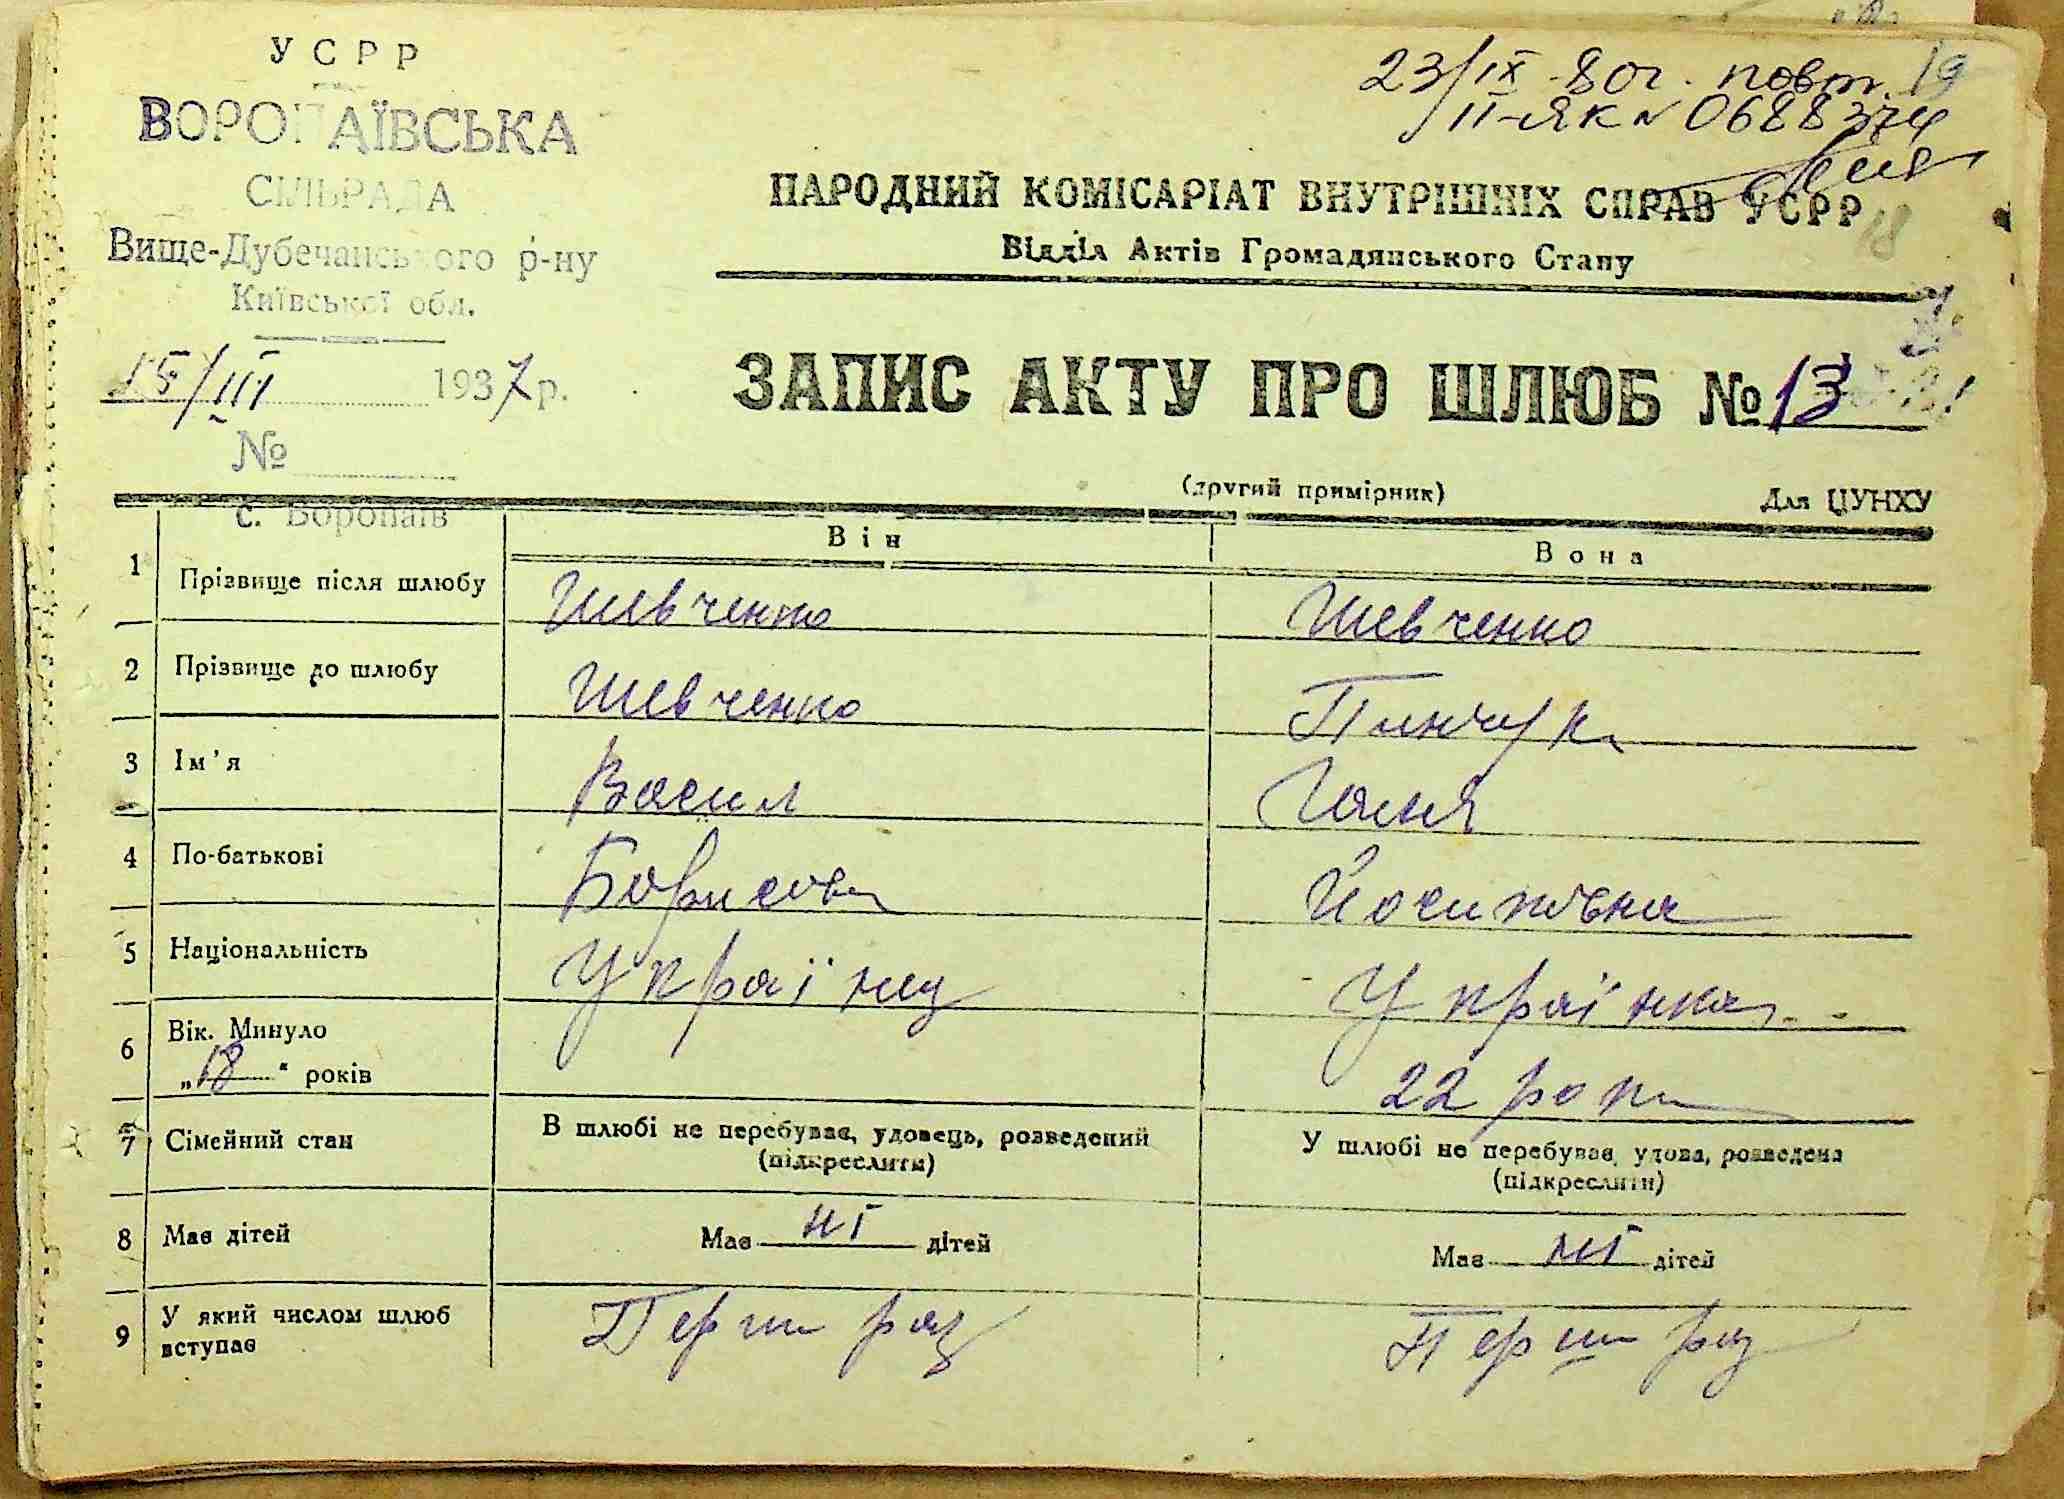 УСРР
ВОРОПАЇВСЬКА
СІЛЬРАДА
Вище-Дубечанського р-ну
Київської обл.
15/III 1937 р.
№
с. Воропаїв
23/IX-80г. повт. 19
II-ЯК № 0688374
18
НАРОДНИЙ КОМІСАРІАТ ВНУТРІШНІХ СПРАВ УСРР
Відділ Актів Громадянського Стану
ЗАПИС АКТУ ПРО ШЛЮБ № 13
(другий примірник) Для ЦУНХУ
Він Вона
1 Прізвище після шлюбу Шевченко Шевченко
2 Прізвище до шлюбу Шевченко Пинчук
3 Ім'я Васил Галя
4 По-батькові Борисов Йосиповна
5 Національність Українц Українка
6 Вік. Минуло „18“ років 22 роки
7 Сімейний стан В шлюбі не перебуває, удовець, розведений (підкреслити) У шлюбі не перебуває, удова, розведена (підкреслити)
8 Має дітей Має ні дітей Має ні дітей
9 У який числом шлюб вступає Перш раз Перш раз